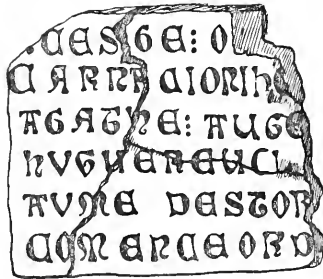 .CESGE: O
CARNACIONIhC
AGAThE: AUGE
hVGUEREUCLI
AVME DESTOR
COMENCEORD